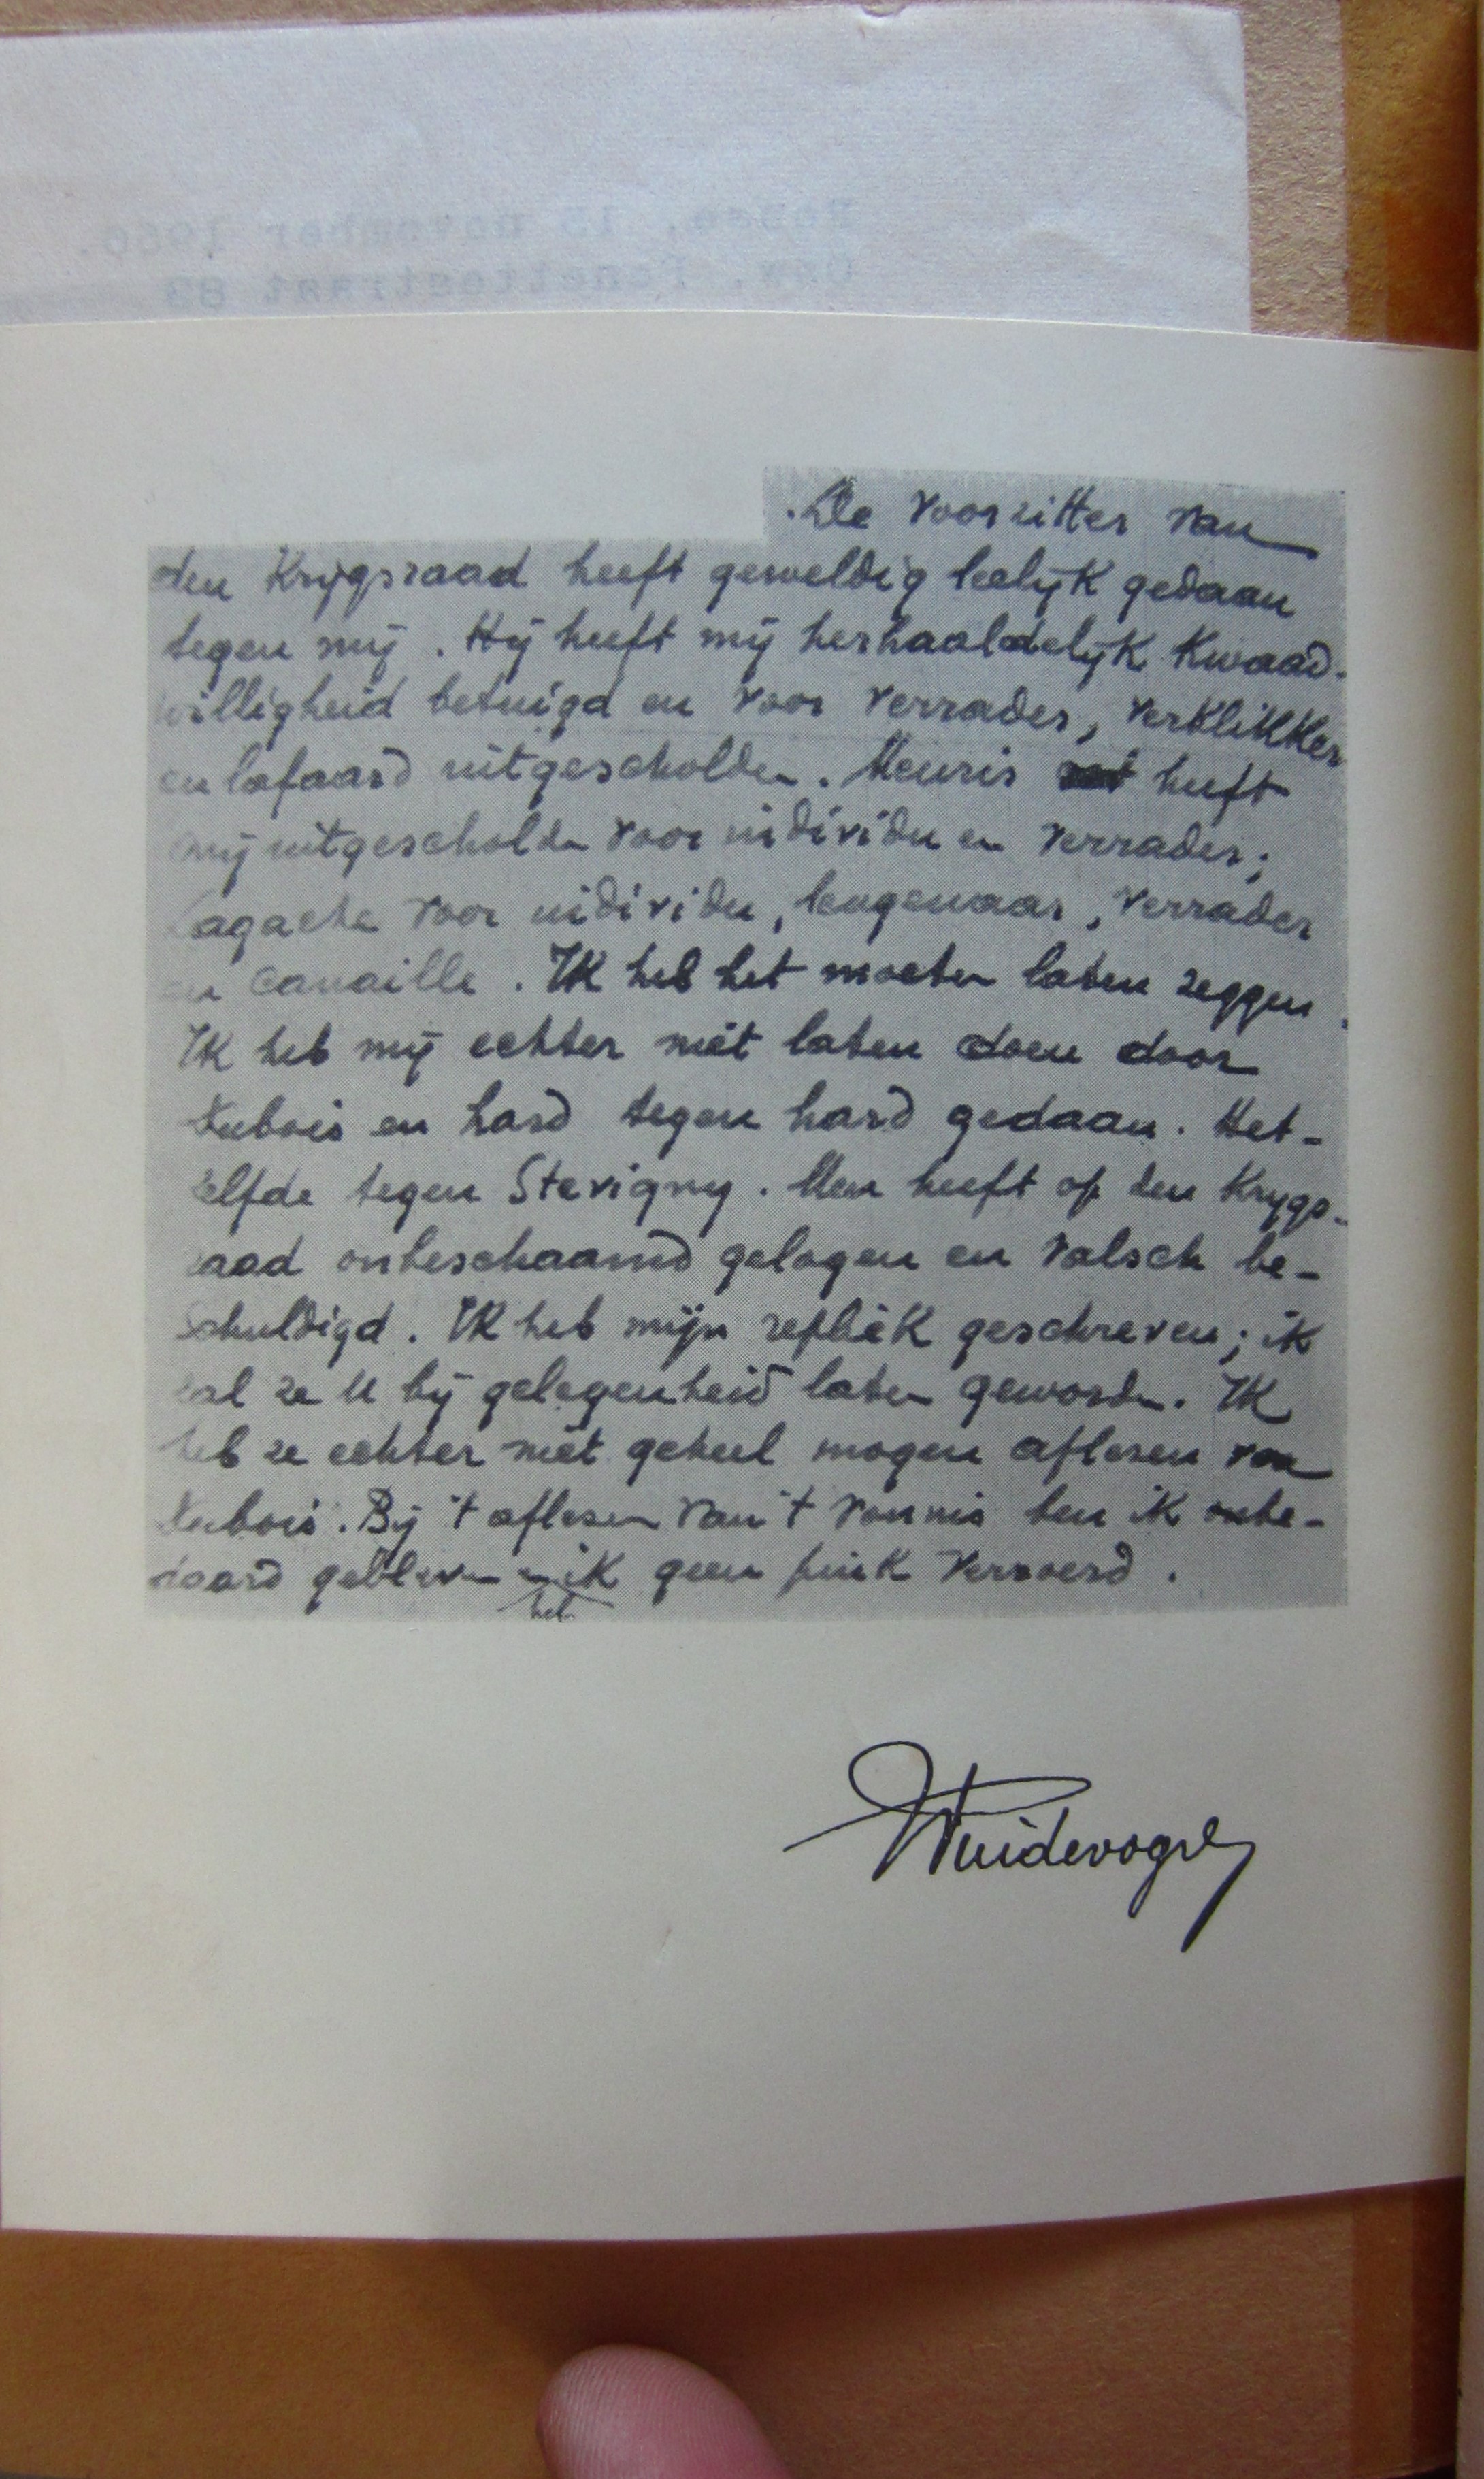 Ronse, 15 november 1966.
Onw. Fonettestraat 83
.De voorzitter van
den Krijgsraad heeft geweldig leelijk gedaan
tegen mij. Hij heeft mij herhaaldelijk Kwaad-
willigheid betuigd en voor verrader, verklikker
en lafaard uitgescholden. Meuris heeft
mij uitgescholden voor individu en verrader;
Lagache voor individu, leugenaar, verrader
en canaille. Ik heb het moeten laten zeggen.
Ik heb mij echter niet laten doen door
Dubois en hard tegen hard gedaan. Het-
zelfde tegen Stevigny. Men heeft op den Krijgs-
raad onbeschaamd gelogen en valsch be-
schuldigd. Ik heb mijn repliek geschreven; ik
zal ze U bij gelegenheid laten geworden. Ik
heb ze echter niet geheel mogen aflezen van
Dubois. Bij 't aflezen van 't vonnis ben ik onbe-
daard gebleven en ik geen pink verroerd.
heb
Wuidevogel